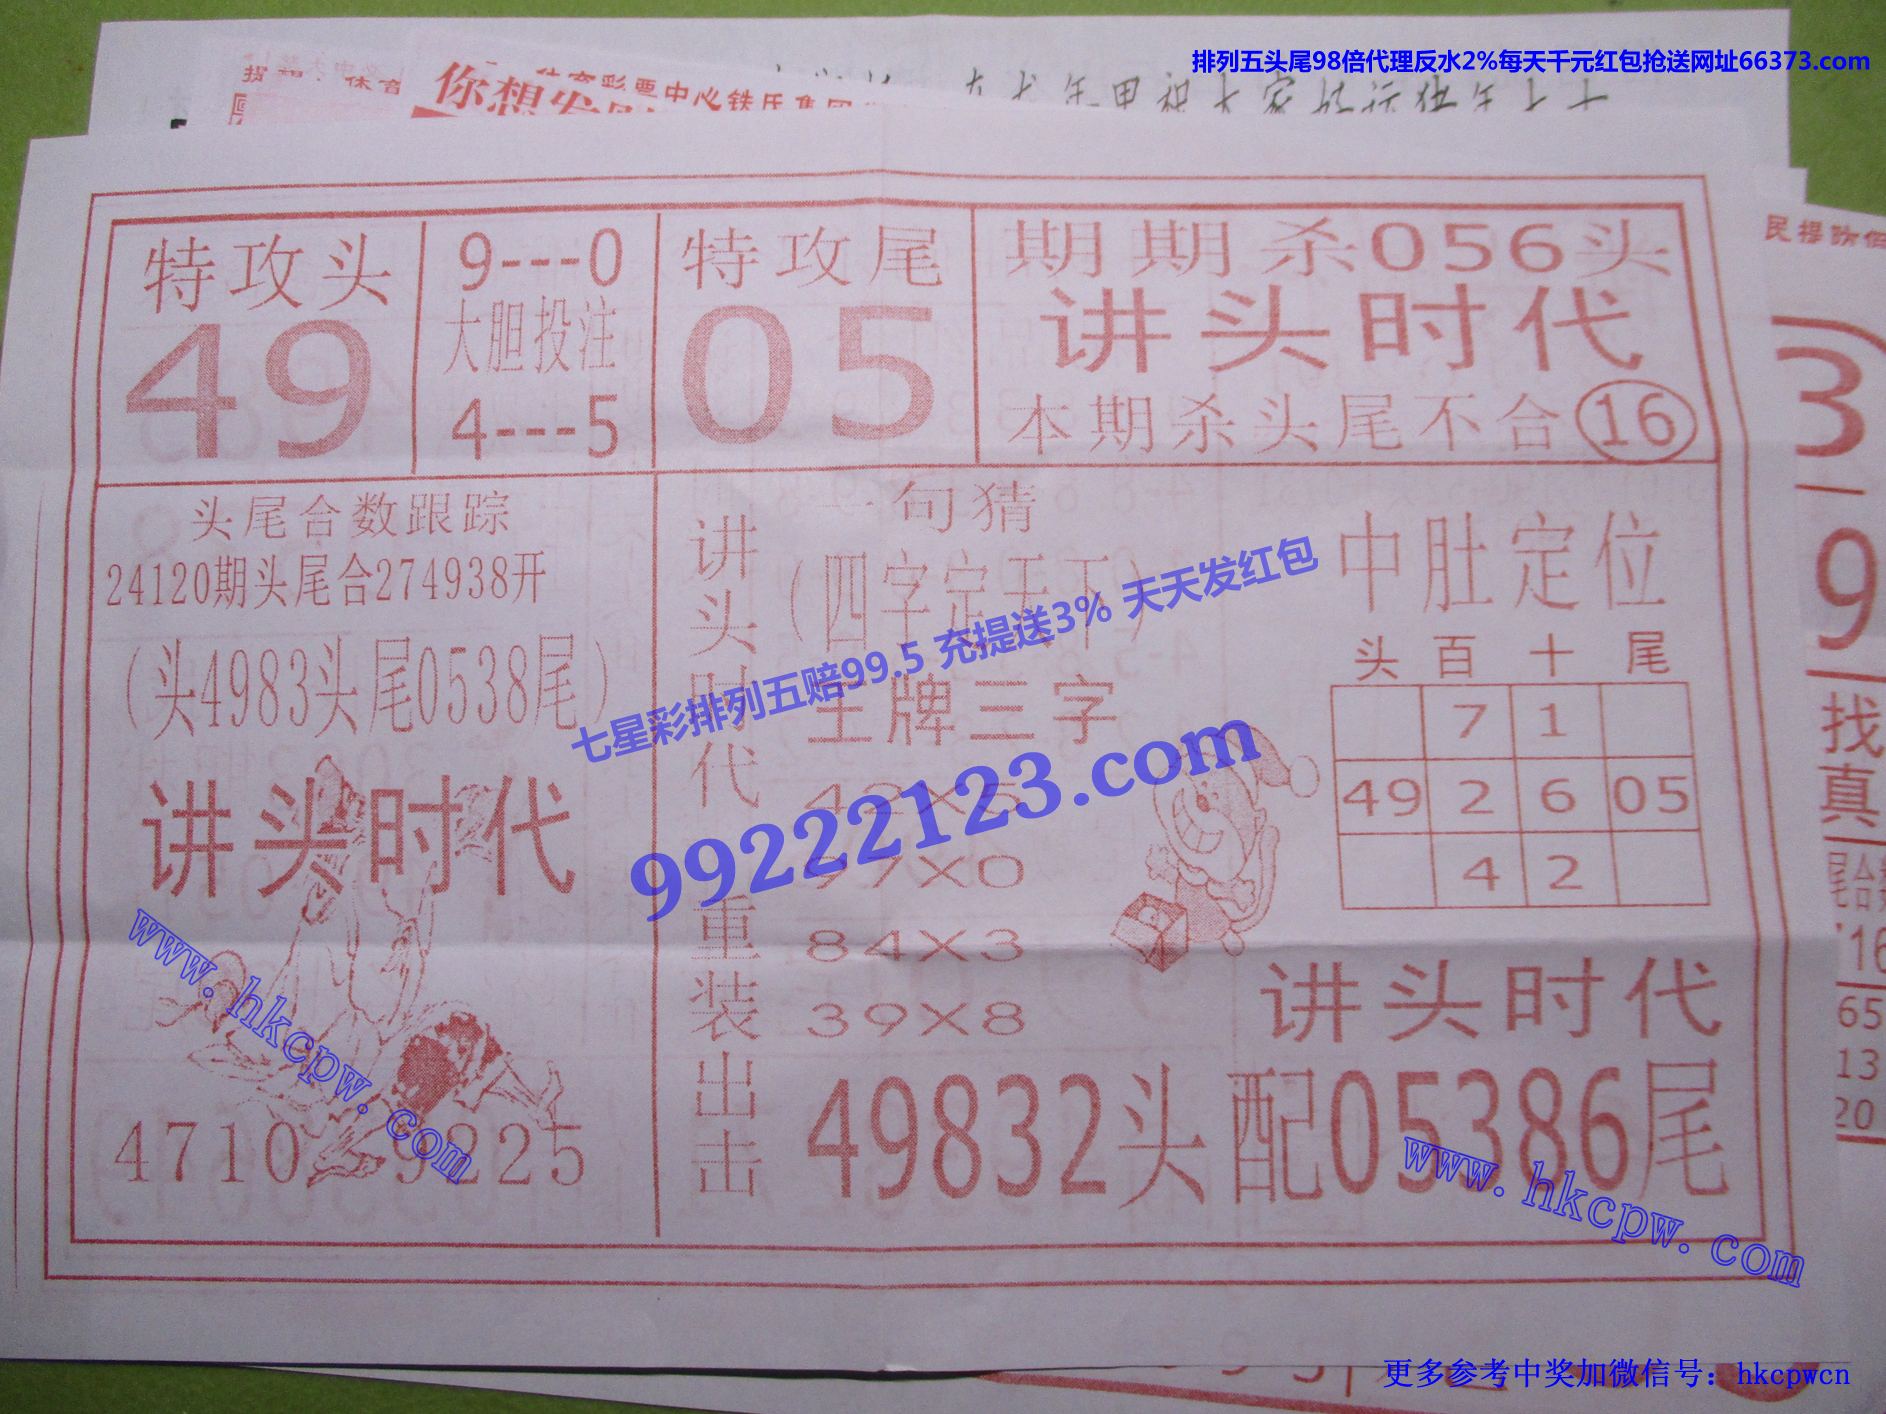 排列五头尾98倍代理反水2%每天千元红包抢送网址66373.com
特攻头
49
9---0
大胆投注
4---5
特攻尾
05
期期杀056头
讲头时代
本期杀头尾不合16
头尾合数跟踪
24120期头尾合274938开
(头4983头尾0538尾)
讲头时代
4710 9225
讲头时代 重装出击
一句猜
(四字定天下)
王牌三字
49X5
97X0
84X3
39X8
中肚定位
头 百 十 尾
7 1
49 2 6 05
4 2
讲头时代
49832头配05386尾
七星彩排列五赔99.5 充提送3% 天天发红包
99222123.com
www.hkcpw.com
www.hkcpw.com
3
9
找
真
尾合
16
65
13
20
更多参考中奖加微信号：hkcpwcn